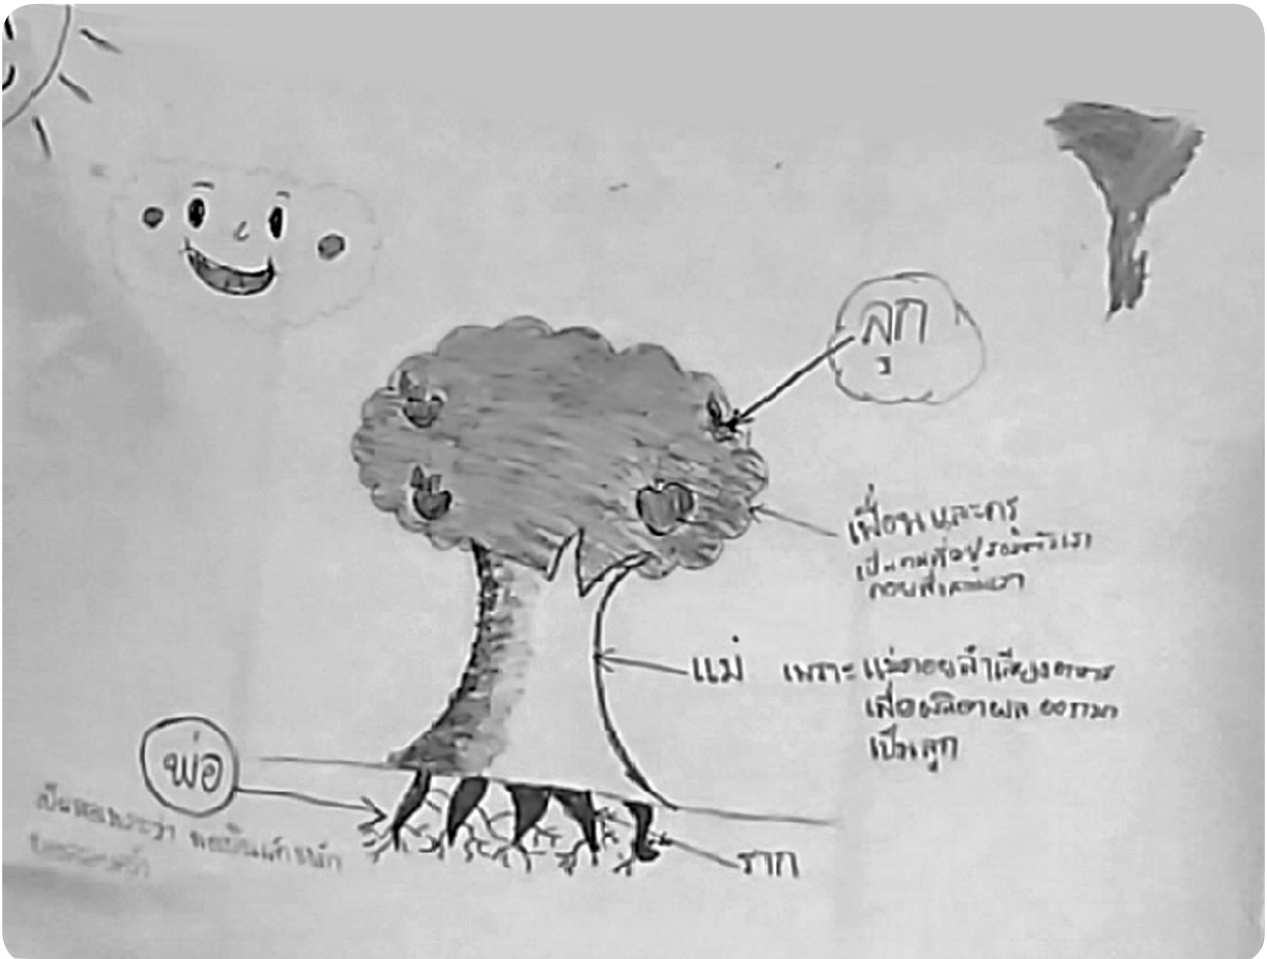 ลูก
เพื่อนและครู
เป็นคนที่อยู่รอบตัวเรา
คอยสั่งสอนเรา
แม่ เพราะแม่คอยลำเลียงอาหาร
เพื่อผลิตาผล ออกมา
เป็นลูก
พ่อ
เป็นพ่อเพราะว่า พ่อเป็นเสาหลัก
ของครอบครัว
ราก